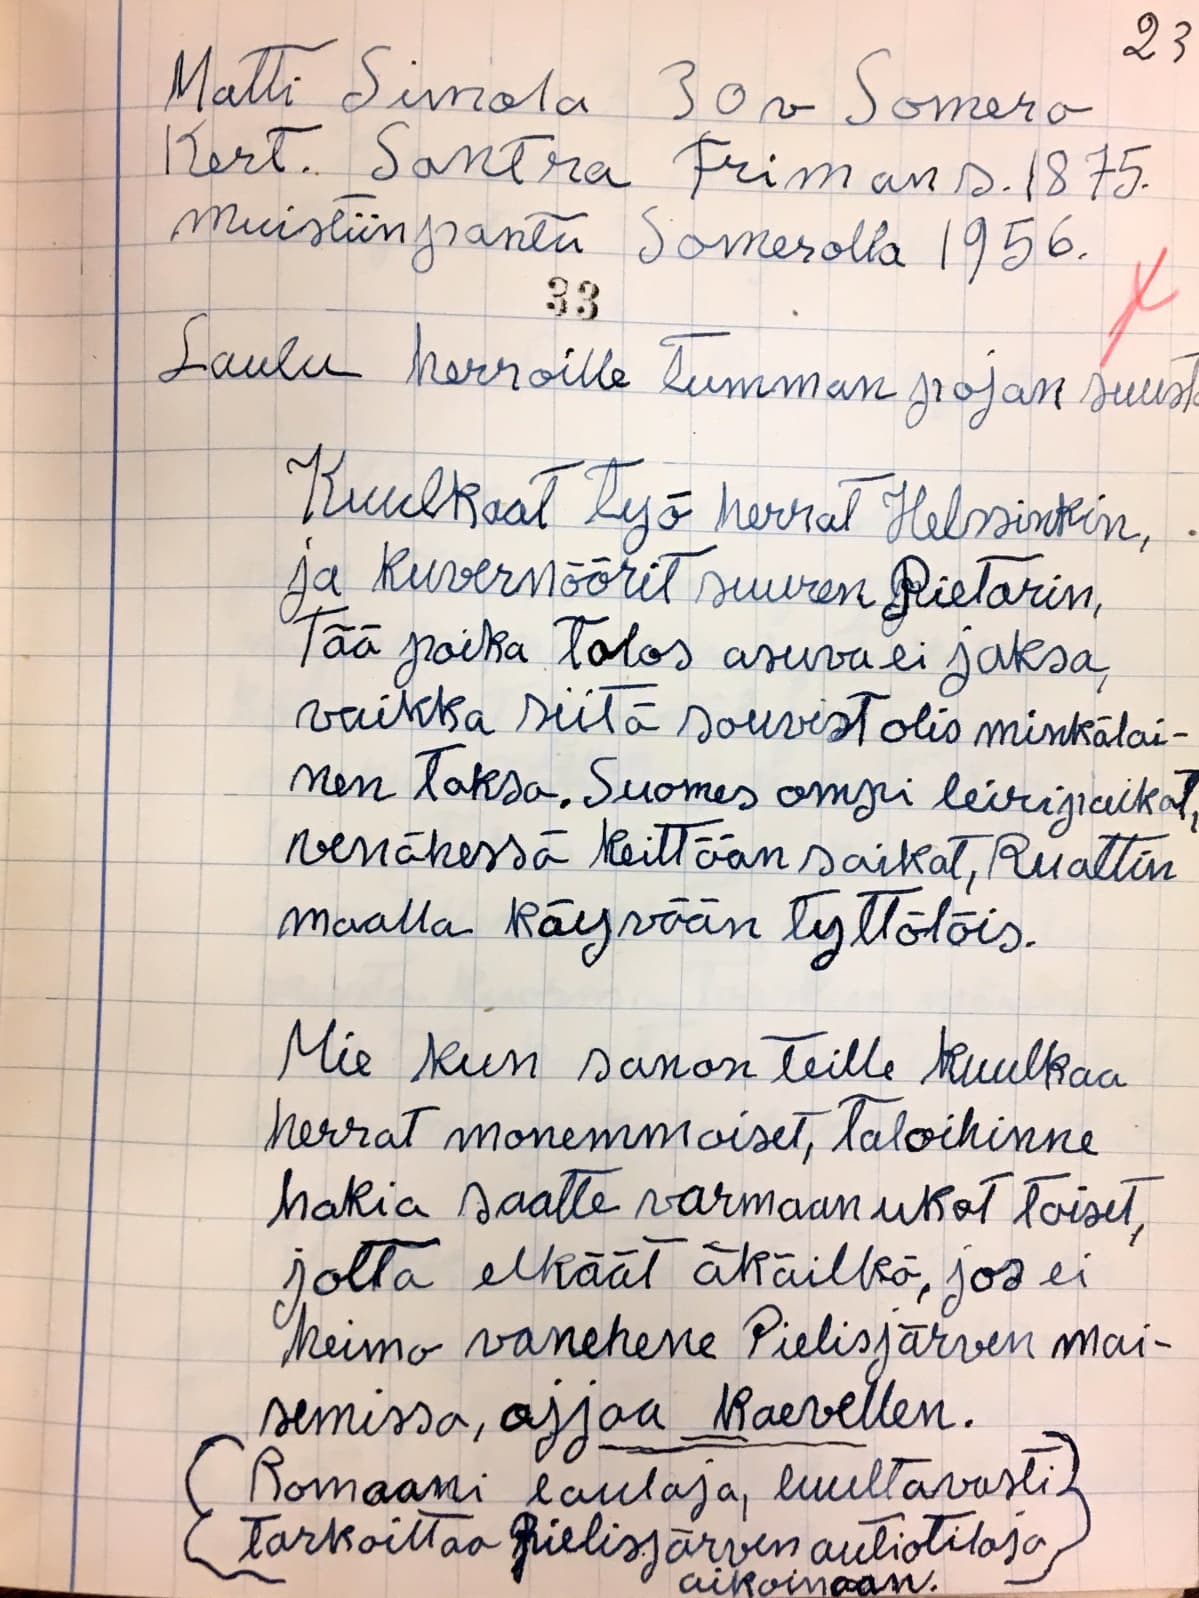 23
Matti Simola 30 v Somero
Kert. Santra Friman s. 1875.
muistiinpantu Somerolla 1956.
33
Laulu herroille tumman pojan suusta
Kuulkaat työ herrat Helssinkin,
ja kuvernöörit suuren Pietarin,
Tää poika talos asuva ei jaksa,
vaikka siitä souvist olis minkälai-
nen taksa. Suomes ompi leiripaikat,
venähessä keittään saikat, Ruattin
maalla käyvään tyttölöis.
Mie kun sanon teille kuulkaa
herrat monemmoiset, taloihinne
hakia saatte varmaan ukot toiset,
jotta elkäät äkäilkö, jos ei
heimo vanehene Pielisjärven mai-
semissa, ajjaa kaevellen.
(Romaani laulaja, luultavasti
tarkoittaa Pielisjärven autiotiloja
aikoinaan.)